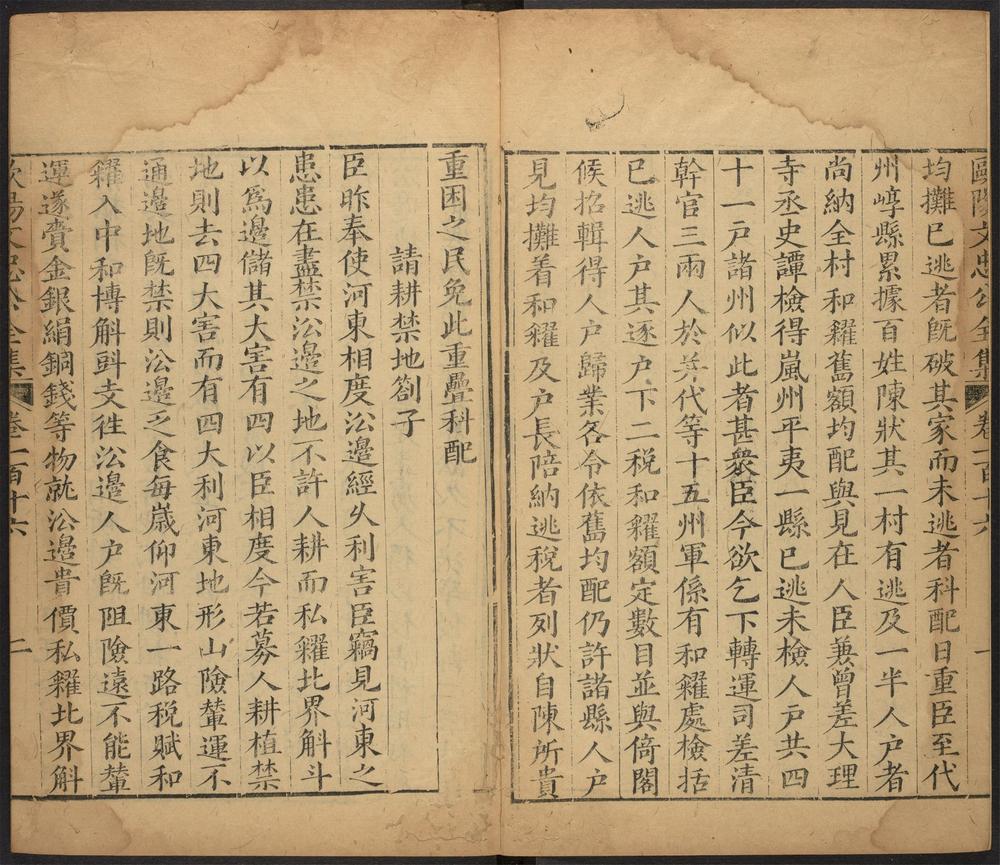 歐陽文忠公全集 卷一百十六 一
均攤巳逃者旣破其家而未逃者科配日重臣至代
州崞縣累據百姓陳狀其一村有逃及一半人户者
尚納全村和糴舊額均配與見在人臣兼曾差大理
寺丞史譚檢得嵐州平夷一縣巳逃未檢人户共四
十一户諸州似此者甚衆臣今欲乞下轉運司差清
幹官三兩人於并代等十五州軍係有和糴處檢括
巳逃人户其逐户下二税和糴額定數目並與倚閣
候招輯得人户歸業各令依舊均配仍許諸縣人户
見均攤着和糴及户長陪納逃税者列狀自陳所貴
重困之民免此重疊科配
請耕禁地劄子
臣昨奉使河東相度沿邊經久利害臣竊見河東之
患患在盡禁沿邊之地不許人耕而私糴北界斛斗
以爲邊儲其大害有四以臣相度今若募人耕植禁
地則去四大害而有四大利河東地形山險輦運不
通邊地旣禁則沿邊乏食每歲仰河東一路税賦和
糴入中和博斛㪷支徃沿邊人户旣阻險遠不能輦
運遂賫金銀絹銅錢等物就沿邊貴價私糴北界斛
歐陽文忠公全集 卷一百十六 二